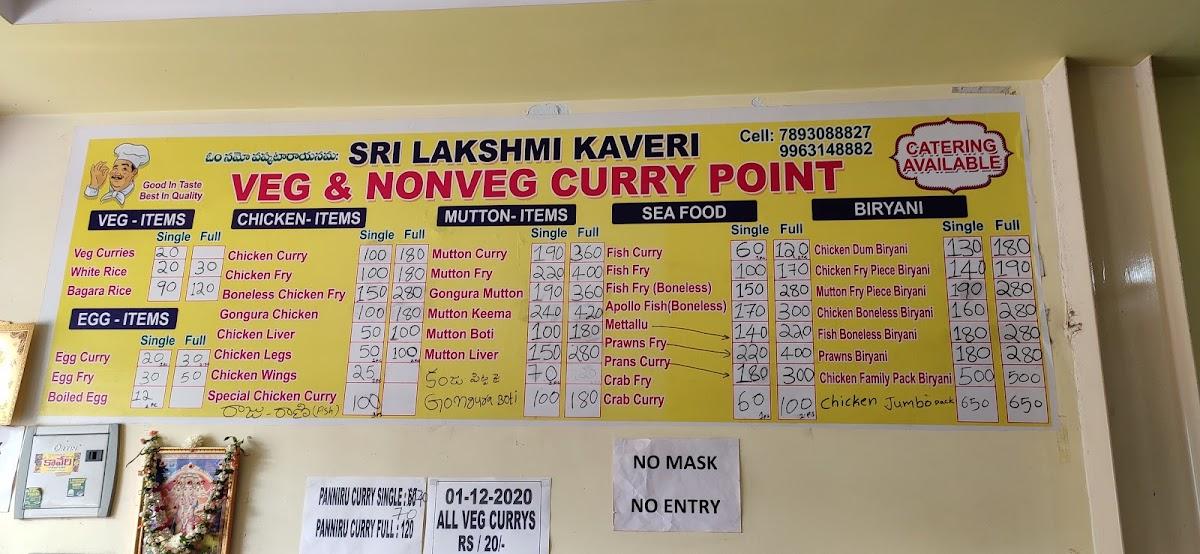 ఓం నమో వప్పుటారాయనమ: SRI LAKSHMI KAVERI
Cell: 7893088827
9963148882
CATERING
AVAILABLE
Good In Taste
Best In Quality
VEG & NONVEG CURRY POINT
VEG - ITEMS
Single Full
Veg Curries 20
White Rice 20 30
Bagara Rice 90 120
EGG - ITEMS
Single Full
Egg Curry 20 30
Egg Fry 30 50
Boiled Egg 12
CHICKEN- ITEMS
Single Full
Chicken Curry 100 180
Chicken Fry 100 180
Boneless Chicken Fry 150 280
Gongura Chicken 100 180
Chicken Liver 50 100
Chicken Legs 50 100
Chicken Wings 25
Special Chicken Curry 100
MUTTON- ITEMS
Single Full
Mutton Curry 190 360
Mutton Fry 220 400
Gongura Mutton 190 360
Mutton Keema 240 420
Mutton Boti 100 180
Mutton Liver 150 280
కందు పిట్ట 70
Gongura Boti 100 180
SEA FOOD
Single Full
Fish Curry 60 120
Fish Fry 100 170
Fish Fry (Boneless) 150 280
Apollo Fish(Boneless) 170 300
Mettallu 140 220
Prawns Fry 220 400
Prans Curry 180 300
Crab Fry
Crab Curry 60 100
BIRYANI
Single Full
Chicken Dum Biryani 130 180
Chicken Fry Piece Biryani 140 190
Mutton Fry Piece Biryani 190 280
Chicken Boneless Biryani 160 280
Fish Boneless Biryani 180 280
Prawns Biryani 180 280
Chicken Family Pack Biryani 500 500
Chicken Jumbo pack 650 650
కావేరి
PANNIRU CURRY SINGLE : 70
PANNIRU CURRY FULL : 120
01-12-2020
ALL VEG CURRYS
RS / 20/-
NO MASK
NO ENTRY